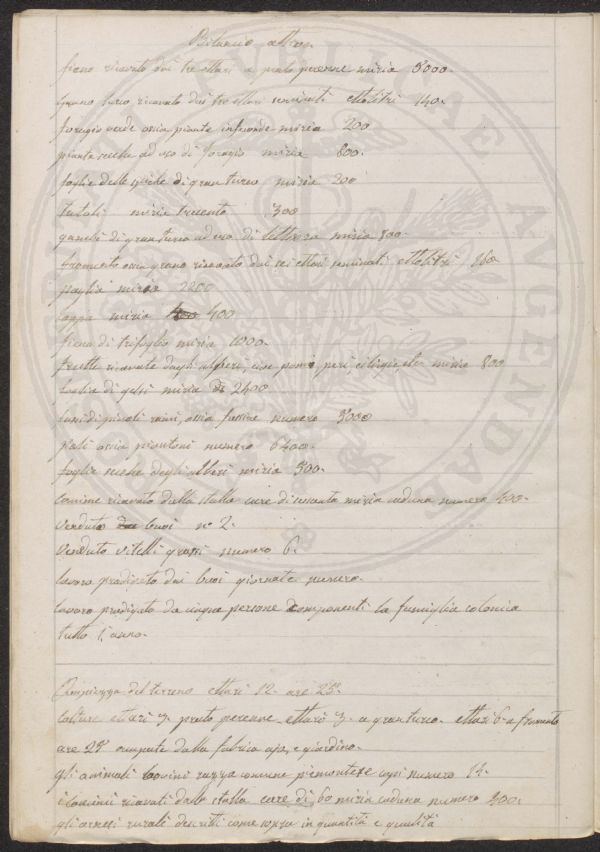 Bilancio attivo.
fieno ricavato dai tre ettari a prato perenne miria 3000.
grano turco ricavato dai tre ettari seminati ettolitri 140.
foragio verde ossia piante infeconde miria 200
piante secche ad uso di foragio miria 800.
foglie delle spiche di gran turco miria 200
tutoli miria trecento 300
gambi di granturco ad uso di lettiera miria 800.
frumento ossia grano ricavato dai sei ettari seminati ettolitri 160
paglia miria 2200
loppa miria 400
fieno di trifoglio miria 1000.
frutta ricavata dagli alberi, cioè pomi, peri ciliegi etc miria 800
foglia di gelsi miria 2400
fassi di piccoli rami, ossia fassine numero 3000
pali ossia piantoni numero 6400.
foglie secche degli alberi miria 300.
concime ricavato dalla stalla care di sessanta miria caduna numero 400.
venduto buoi n° 2.
venduto vitelli grassi numero 6.
lavoro prodigato dai buoi giornate numero.
lavoro prodigato da cinque persone componenti la famiglia colonica
tutto l'anno.
Ampiezza del terreno ettari 12. are 25.
colture ettari 3 prato perenne, ettari 3 a granturco. ettari 6 a frumento
are 25 occupate dalla fabrica aja, e giardino.
gli animali bovini razza comune piemontese capi numero 14.
i concimi ricavati dalla stalla care di 60 miria caduna numero 400.
gli arnesi rurali descritti come sopra in quantità e qualità